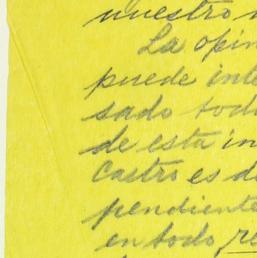 nuestro
La opin
puede inte
sado todo
de esta in
Castro es d
pendiente
en todo, re